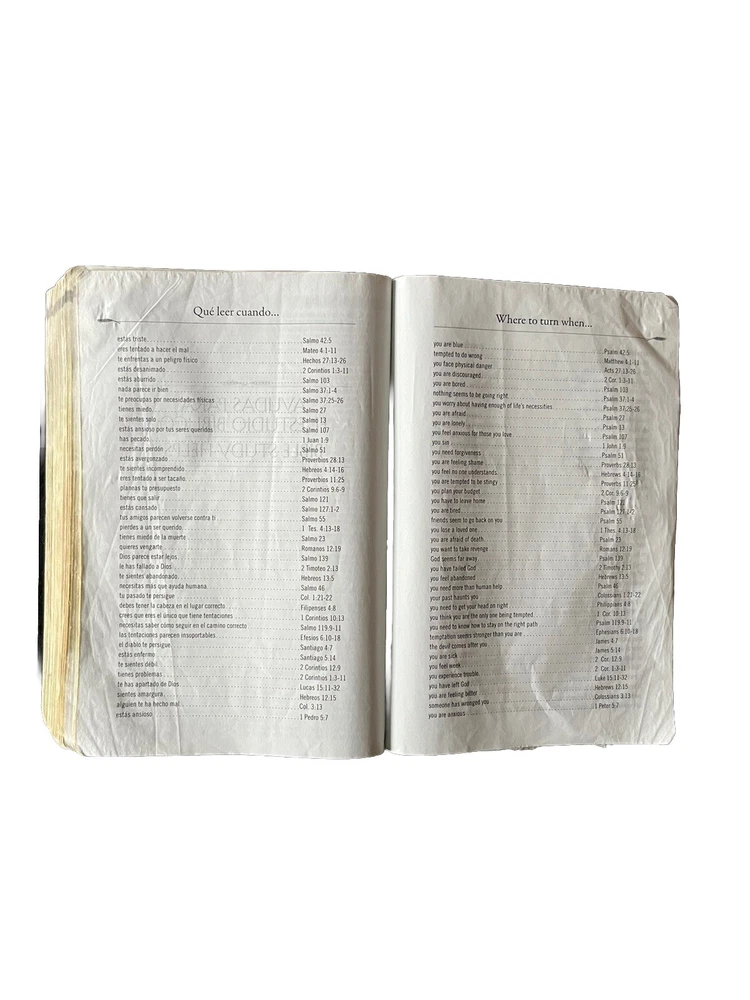 Qué leer cuando...
estás triste Salmo 42.5
eres tentado a hacer el mal Mateo 4.1-11
te enfrentas a un peligro físico Hechos 27.13-26
estás desanimado 2 Corintios 1:3-11
estás aburrido Salmo 103
nada parece ir bien Salmo 37:1-4
te preocupas por necesidades físicas Salmo 37:25-26
tienes miedo Salmo 27
te sientes solo Salmo 13
estás ansioso por tus seres queridos Salmo 107
has pecado 1 Juan 1:9
necesitas perdón Salmo 51
estás avergonzado Proverbios 28:13
te sientes incomprendido Hebreos 4:14-16
eres tentado a ser tacaño Proverbios 11:25
planeas tu presupuesto 2 Corintios 9.6-9
tienes que salir Salmo 121
estás cansado Salmo 127.1-2
tus amigos parecen volverse contra ti Salmo 55
pierdes a un ser querido 1 Tes. 4:13-18
tienes miedo de la muerte Salmo 23
quieres vengarte Romanos 12:19
Dios parece estar lejos Salmo 139
le has fallado a Dios 2 Timoteo 2:13
te sientes abandonado Hebreos 13:5
necesitas más que ayuda humana Salmo 46
tu pasado te persigue Col. 1:21-22
debes tener la cabeza en el lugar correcto Filipenses 4.8
crees que eres el único que tiene tentaciones 1 Corintios 10:13
necesitas saber cómo seguir en el camino correcto Salmo 119.9-11
las tentaciones parecen insoportables Efesios 6.10-18
el diablo te persigue Santiago 4:7
estás enfermo Santiago 5:14
te sientes débil 2 Corintios 12:9
tienes problemas 2 Corintios 1:3-11
te has apartado de Dios Lucas 15:11-32
sientes amargura Hebreos 12:15
alguien te ha hecho mal Col. 3:13
estás ansioso 1 Pedro 5:7
Where to turn when...
you are blue Psalm 42:5
tempted to do wrong Matthew 4:1-11
you face physical danger Acts 27:13-26
you are discouraged 2 Cor. 1:3-11
you are bored Psalm 103
nothing seems to be going right Psalm 37:1-4
you worry about having enough of life's necessities Psalm 37:25-26
you are afraid Psalm 27
you are lonely Psalm 13
you feel anxious for those you love Psalm 107
you sin 1 John 1:9
you need forgiveness Psalm 51
you are feeling shame Proverbs 28:13
you feel no one understands Hebrews 4:14-16
you are tempted to be stingy Proverbs 11:25
you plan your budget 2 Cor. 9:6-9
you have to leave home Psalm 121
you are tired Psalm 127:1-2
friends seem to go back on you Psalm 55
you lose a loved one 1 Thes. 4:13-18
you are afraid of death Psalm 23
you want to take revenge Romans 12:19
God seems far away Psalm 139
you have failed God 2 Timothy 2:13
you feel abandoned Hebrews 13:5
you need more than human help Psalm 46
your past haunts you Colossians 1:21-22
you need to get your head on right Philippians 4:8
you think you are the only one being tempted 1 Cor. 10:13
you need to know how to stay on the right path Psalm 119:9-11
temptation seems stronger than you are Ephesians 6:10-18
the devil comes after you James 4:7
you are sick James 5:14
you feel week 2 Cor. 12:9
you experience trouble 2 Cor. 1:3-11
you have left God Luke 15:11-32
you are feeling bitter Hebrews 12:15
someone has wronged you Colossians 3:13
you are anxious 1 Peter 5:7